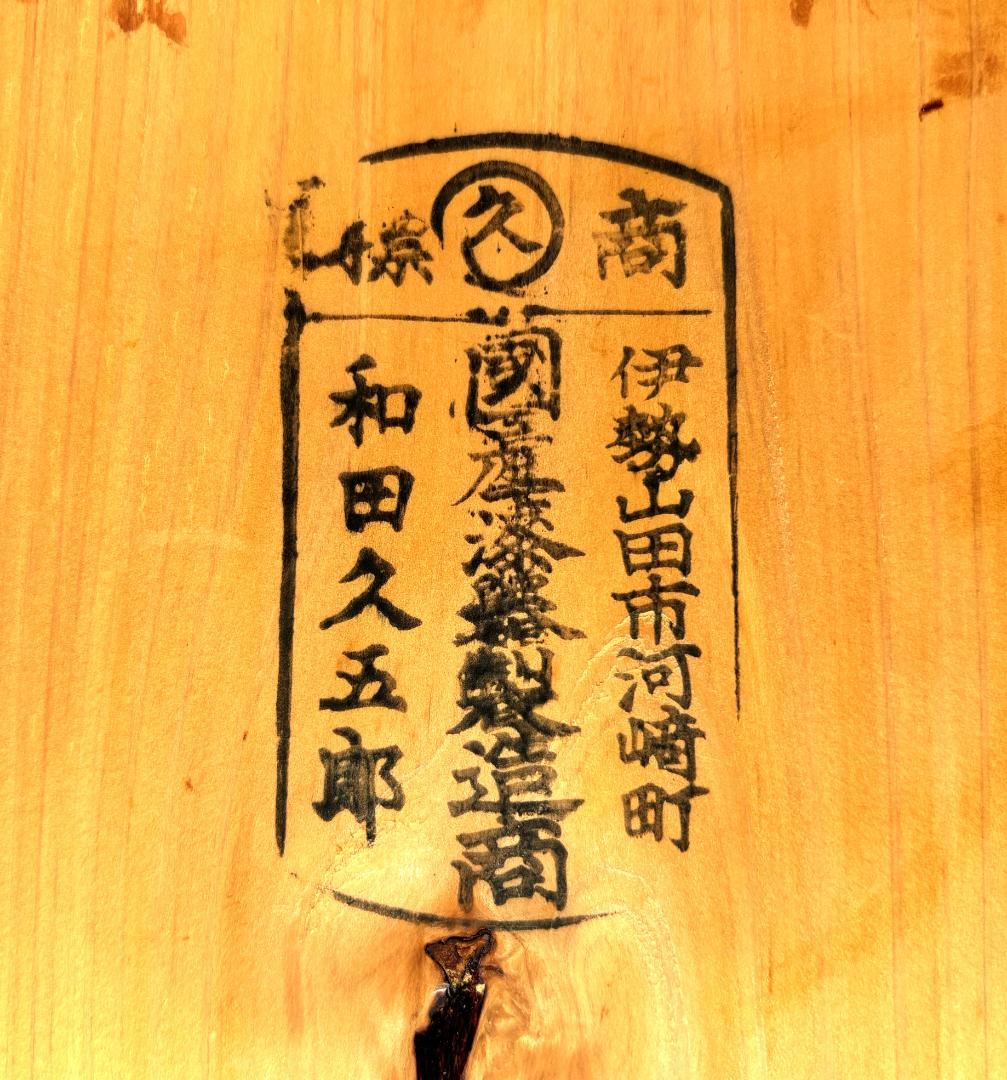 商 久 標
伊勢山田市河崎町
國産漆器製造商
和田久五郎